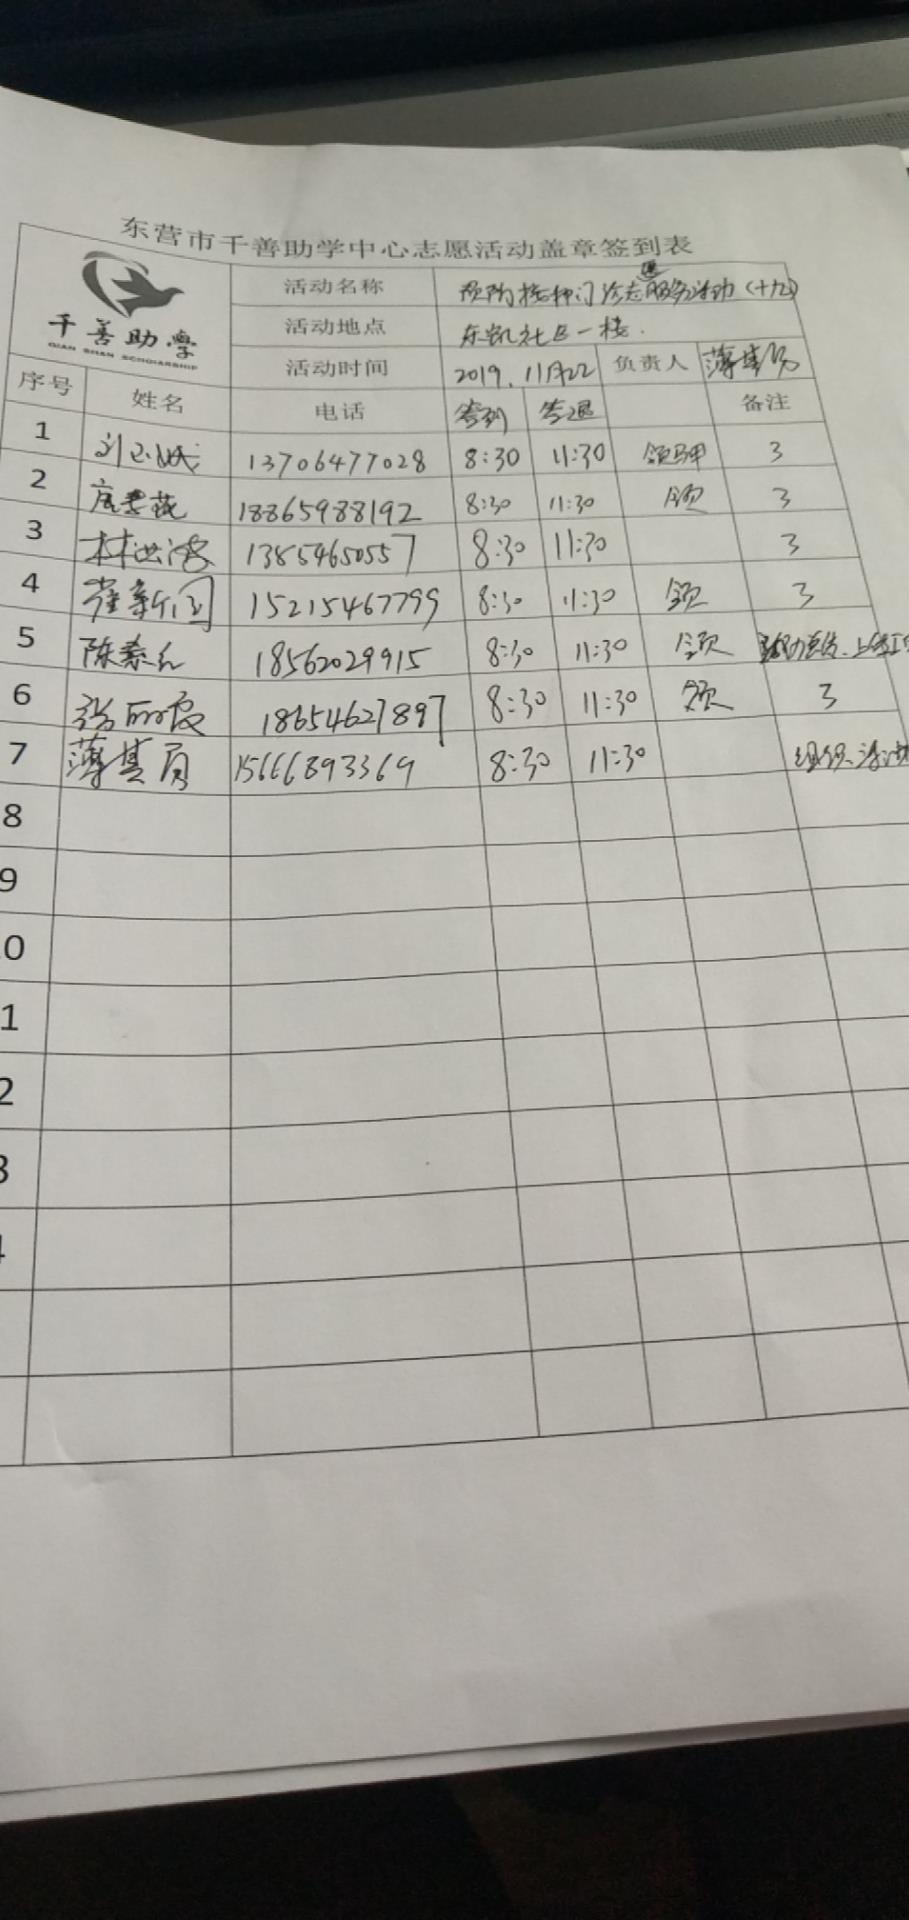 东营市千善助学中心志愿活动盖章签到表
千善助學
QIAN SHAN SCHOLARSHIP
活动名称 预防接种门诊志愿服务活动（十九）
活动地点 东凯社区一楼.
活动时间 2019.11月22 负责人 薄其员
序号 姓名 电话 签到 签退 备注
1 13706477028 8:30 11:30 领马甲 3
2 18865988192 8:30 11:30 领 3
3 林洪海 13854650557 8:30 11:30 3
4 崔新国 15215467799 8:30 11:30 领 3
5 陈泰红 18562029915 8:30 11:30 领
6 张丽霞 18654627897 8:30 11:30 领 3
7 薄其员 15666893369 8:30 11:30 组织、
8
9
0
1
2
3
4